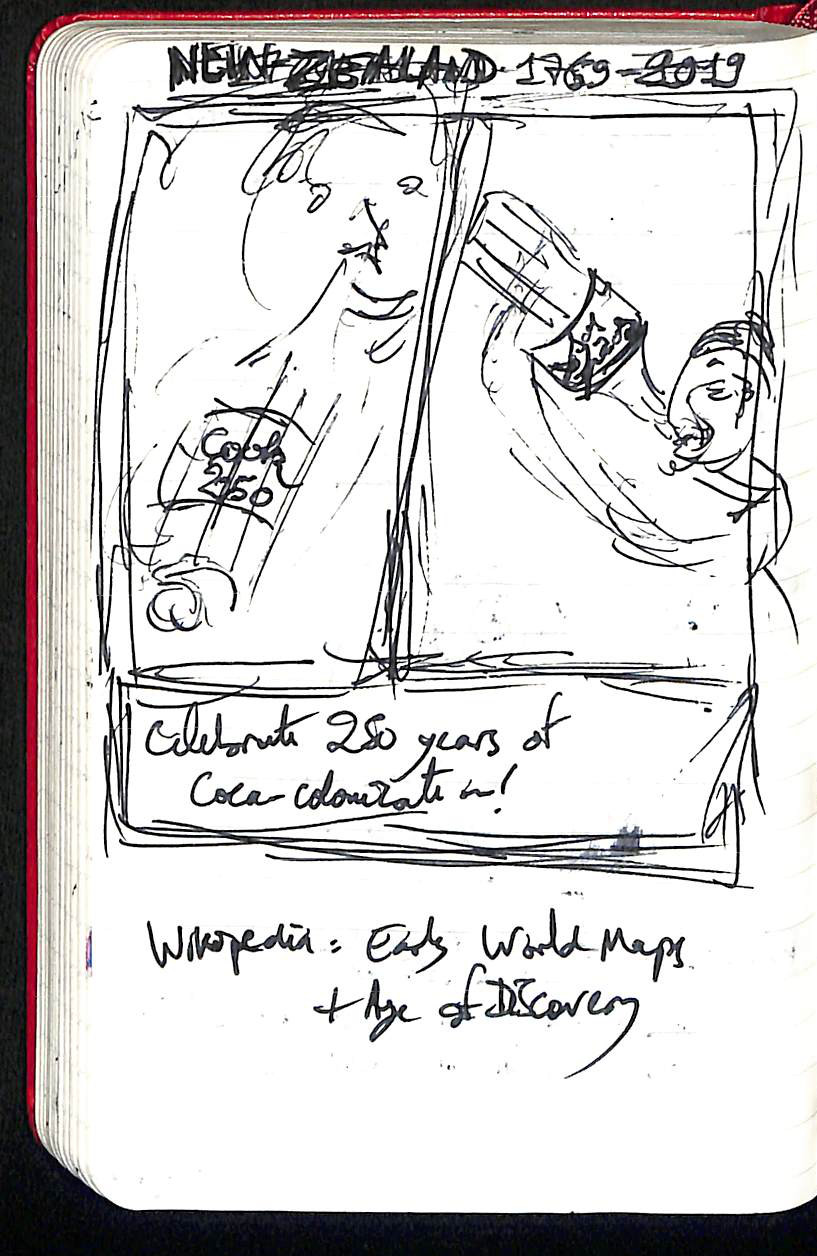 NEW ZEALAND 1769-2019
Cook
250
Celebrate 250 years of
Coca-colonization!
Wikopedia: Early World Maps
+ Age of Discovery